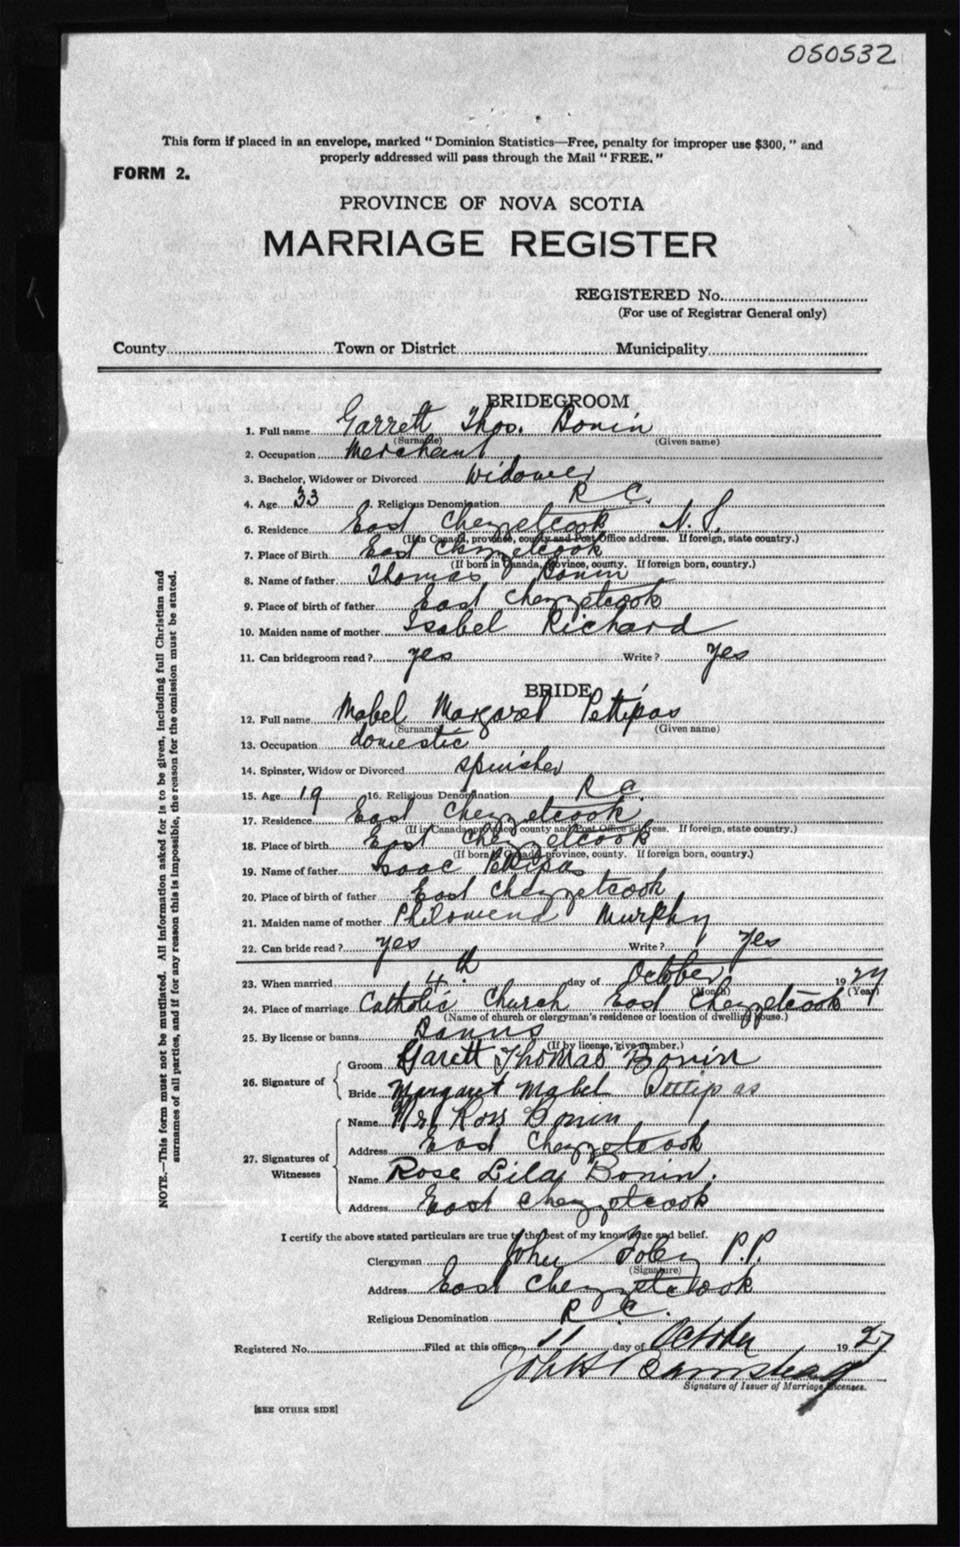 050532
This form if placed in an envelope, marked "Dominion Statistics—Free, penalty for improper use $300," and
properly addressed will pass through the Mail "FREE."
FORM 2.
PROVINCE OF NOVA SCOTIA
MARRIAGE REGISTER
REGISTERED No.
(For use of Registrar General only)
County Town or District Municipality
BRIDEGROOM
1. Full name Garrett Thos. Bonin
(Surname) (Given name)
2. Occupation Merchant
3. Bachelor, Widower or Divorced Widower
4. Age 33 5. Religious Denomination R C.
6. Residence East Chezzetcook N.S.
(If in Canada, province, county and Post Office address. If foreign, state country.)
7. Place of Birth East Chezzetcook
(If born in Canada, province, county. If foreign born, country.)
8. Name of father Thomas Bonin
9. Place of birth of father East Chezzetcook
10. Maiden name of mother Isabel Richard
11. Can bridegroom read? yes Write? yes
BRIDE
12. Full name Mabel Margaret Petipas
(Surname) (Given name)
13. Occupation domestic
14. Spinster, Widow or Divorced spinster
15. Age 19 16. Religious Denomination R C.
17. Residence East Chezzetcook
(If in Canada, province, county and Post Office address. If foreign, state country.)
18. Place of birth East Chezzetcook
(If born in Canada, province, county. If foreign born, country.)
19. Name of father Isaac Petipas
20. Place of birth of father East Chezzetcook
21. Maiden name of mother Philomena Murphy
22. Can bride read? yes Write? yes
23. When married 4th day of October 1927
(Month) (Year)
24. Place of marriage Catholic Church East Chezzetcook
(Name of church or clergyman's residence or location of dwelling house.)
25. By license or banns Banns
(If by license, give number.)
26. Signature of
Groom Garett Thomas Bonin
Bride Margaret Mabel Pettipas
27. Signatures of Witnesses
Name Ross Bonin
Address East Chezzetcook
Name Rose Lila Bonin.
Address East Chezzetcook
I certify the above stated particulars are true to the best of my knowledge and belief.
Clergyman John Foley P.P.
(Signature)
Address East Chezzetcook
Religious Denomination R. C.
Registered No. Filed at this office 11 day of October 1927
Signature of Issuer of Marriage Licenses.
[SEE OTHER SIDE]
NOTE.—This form must not be mutilated. All information asked for is to be given, including full Christian and
surnames of all parties, and if for any reason this is impossible, the reason for the omission must be stated.